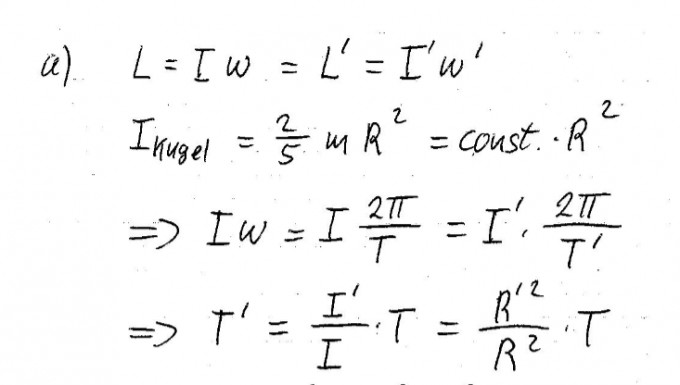 a) L = I w = L' = I' w'
I_Kugel = 2/5 m R² = const. · R²
=> I w = I 2π/T = I' · 2π/T'
=> T' = I'/I · T = R'²/R² · T